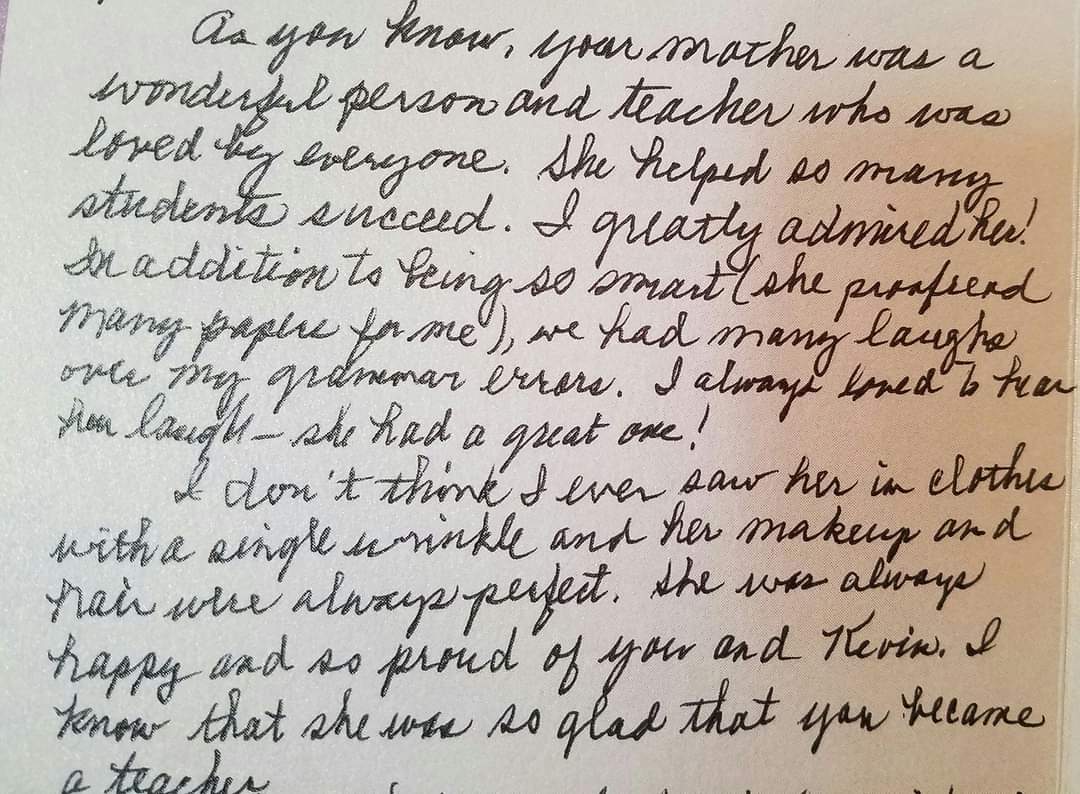 As you know, your mother was a
wonderful person and teacher who was
loved by everyone. She helped so many
students succeed. I greatly admired her!
In addition to being so smart (she proofread
many papers for me), we had many laughs
over my grammar errors. I always loved to hear
her laugh - she had a great one!
I don't think I ever saw her in clothes
with a single wrinkle and her makeup and
hair were always perfect. She was always
happy and so proud of you and Kevin. I
know that she was so glad that you became
a teacher